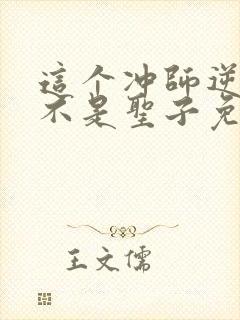 這个冲師逆
不是聖子免
王文儒